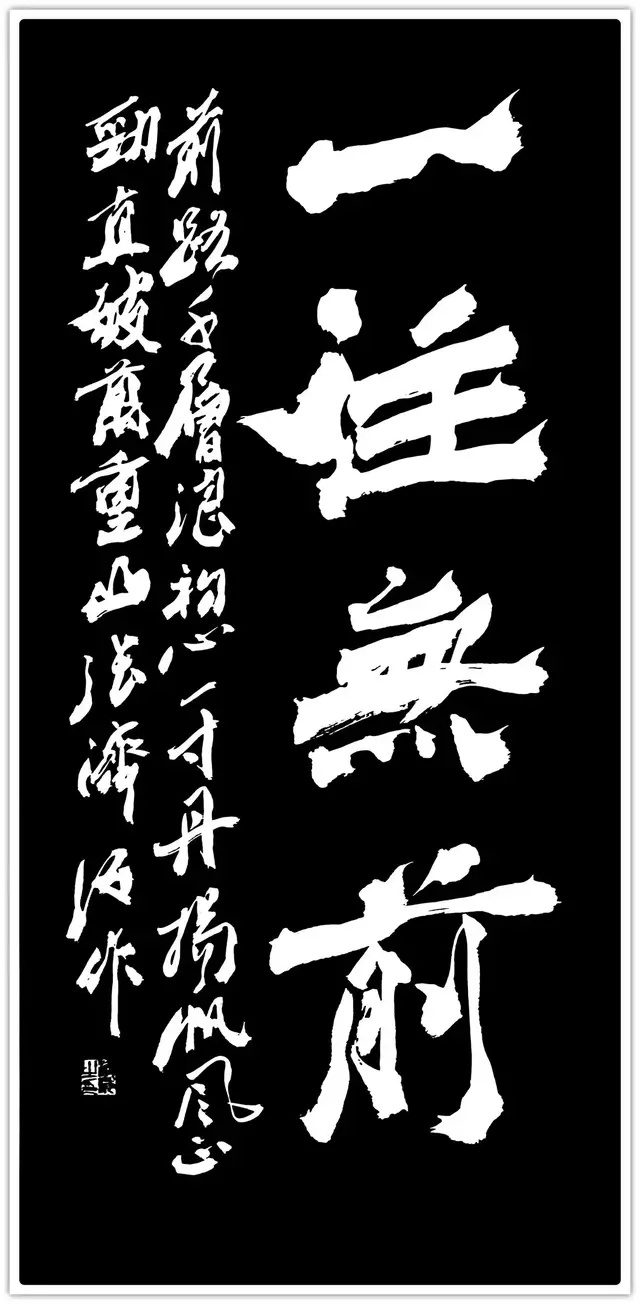 一往無前
前路千層浪初心一寸丹揚帆风正
勁直破萬重山張濟海作